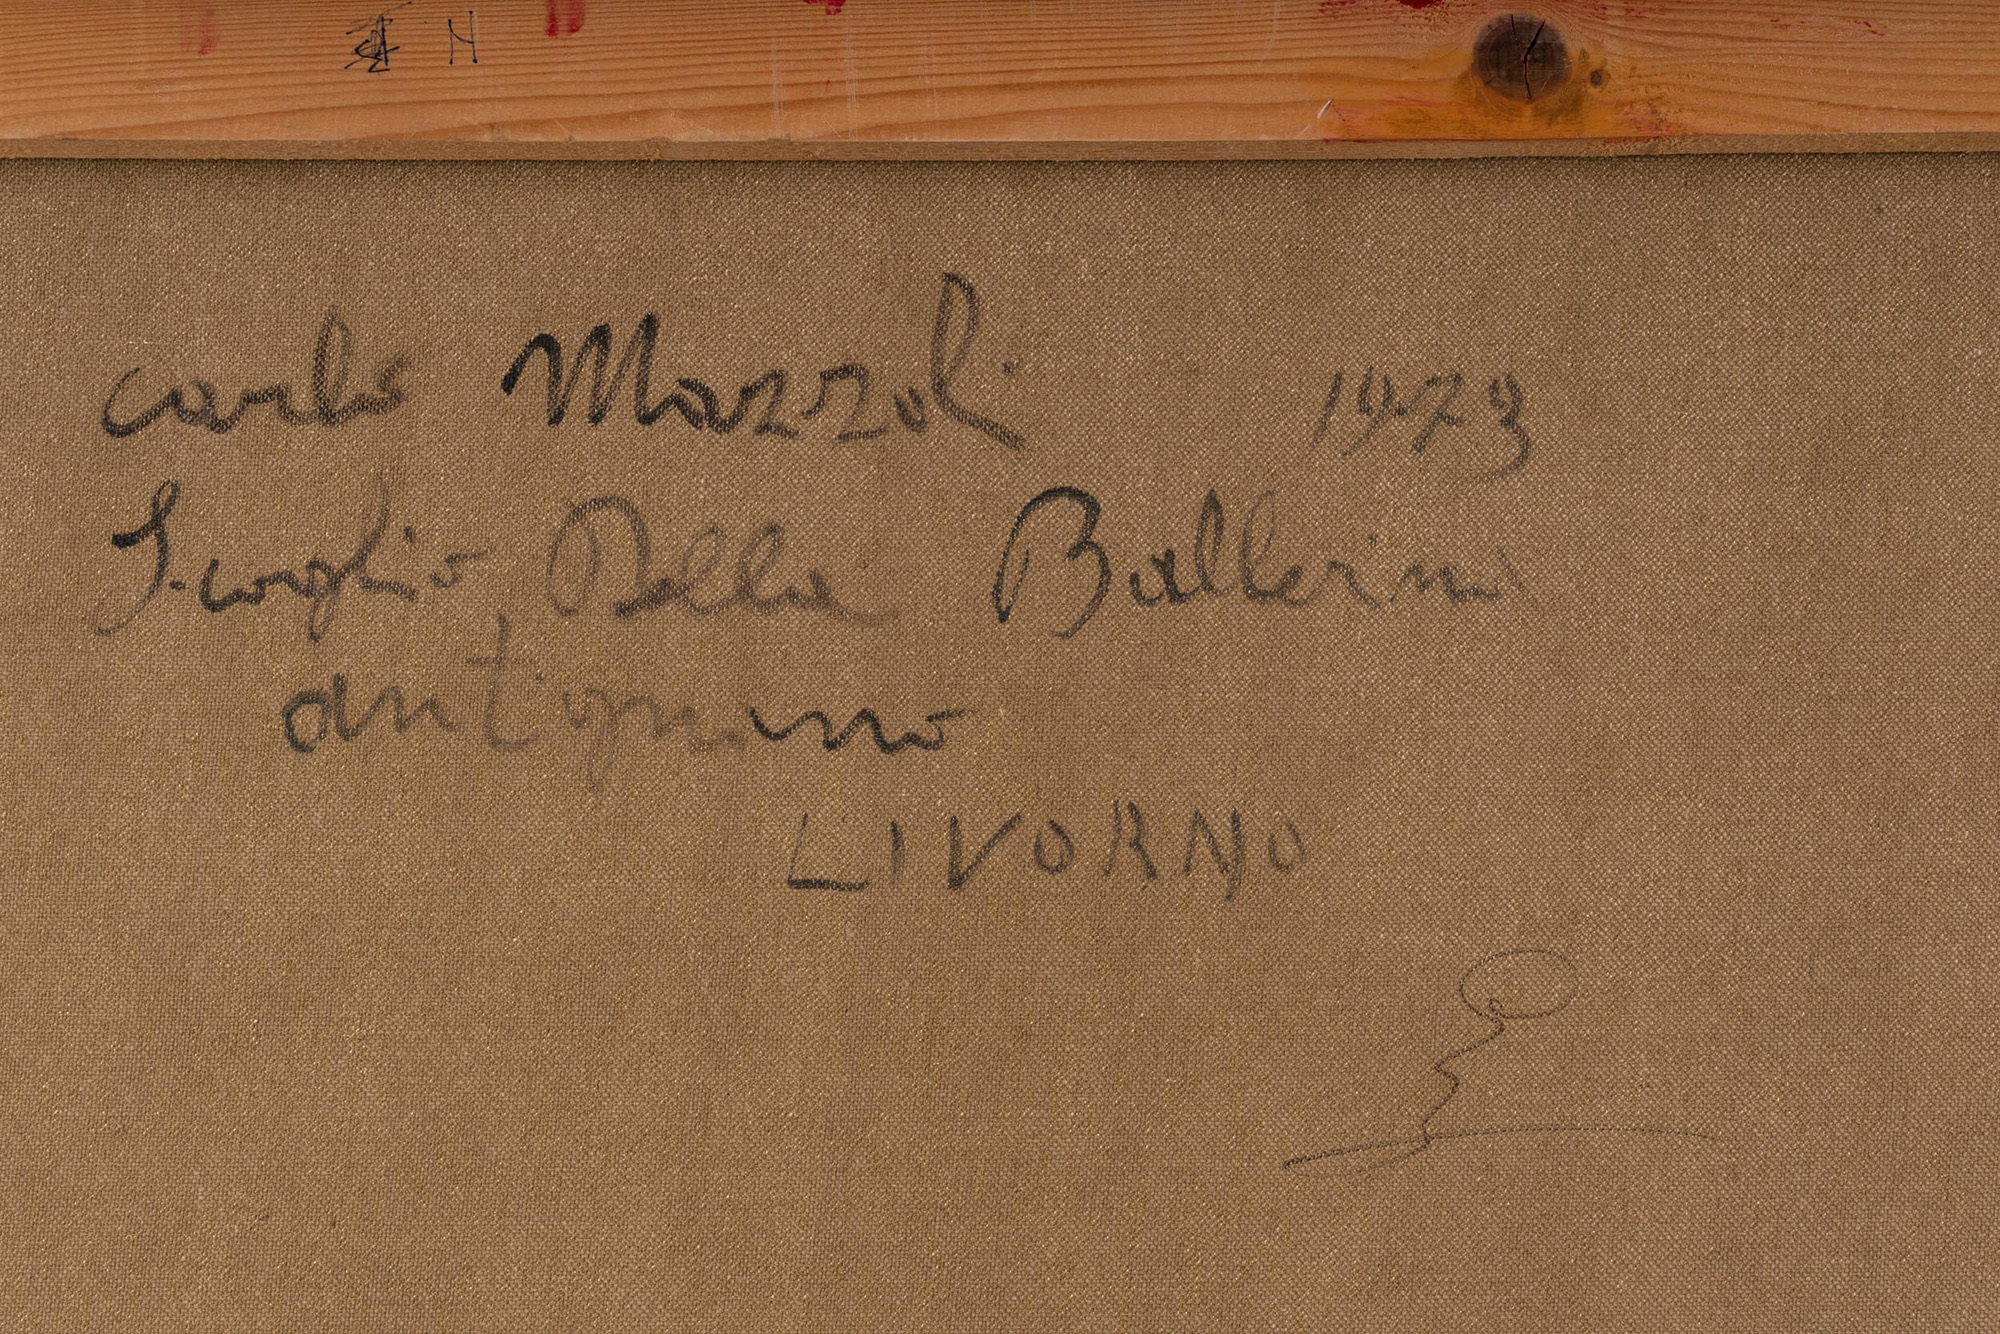 H
Carlo Mazzoli 1973
Scoglio Della Ballerina
antignano
LIVORNO